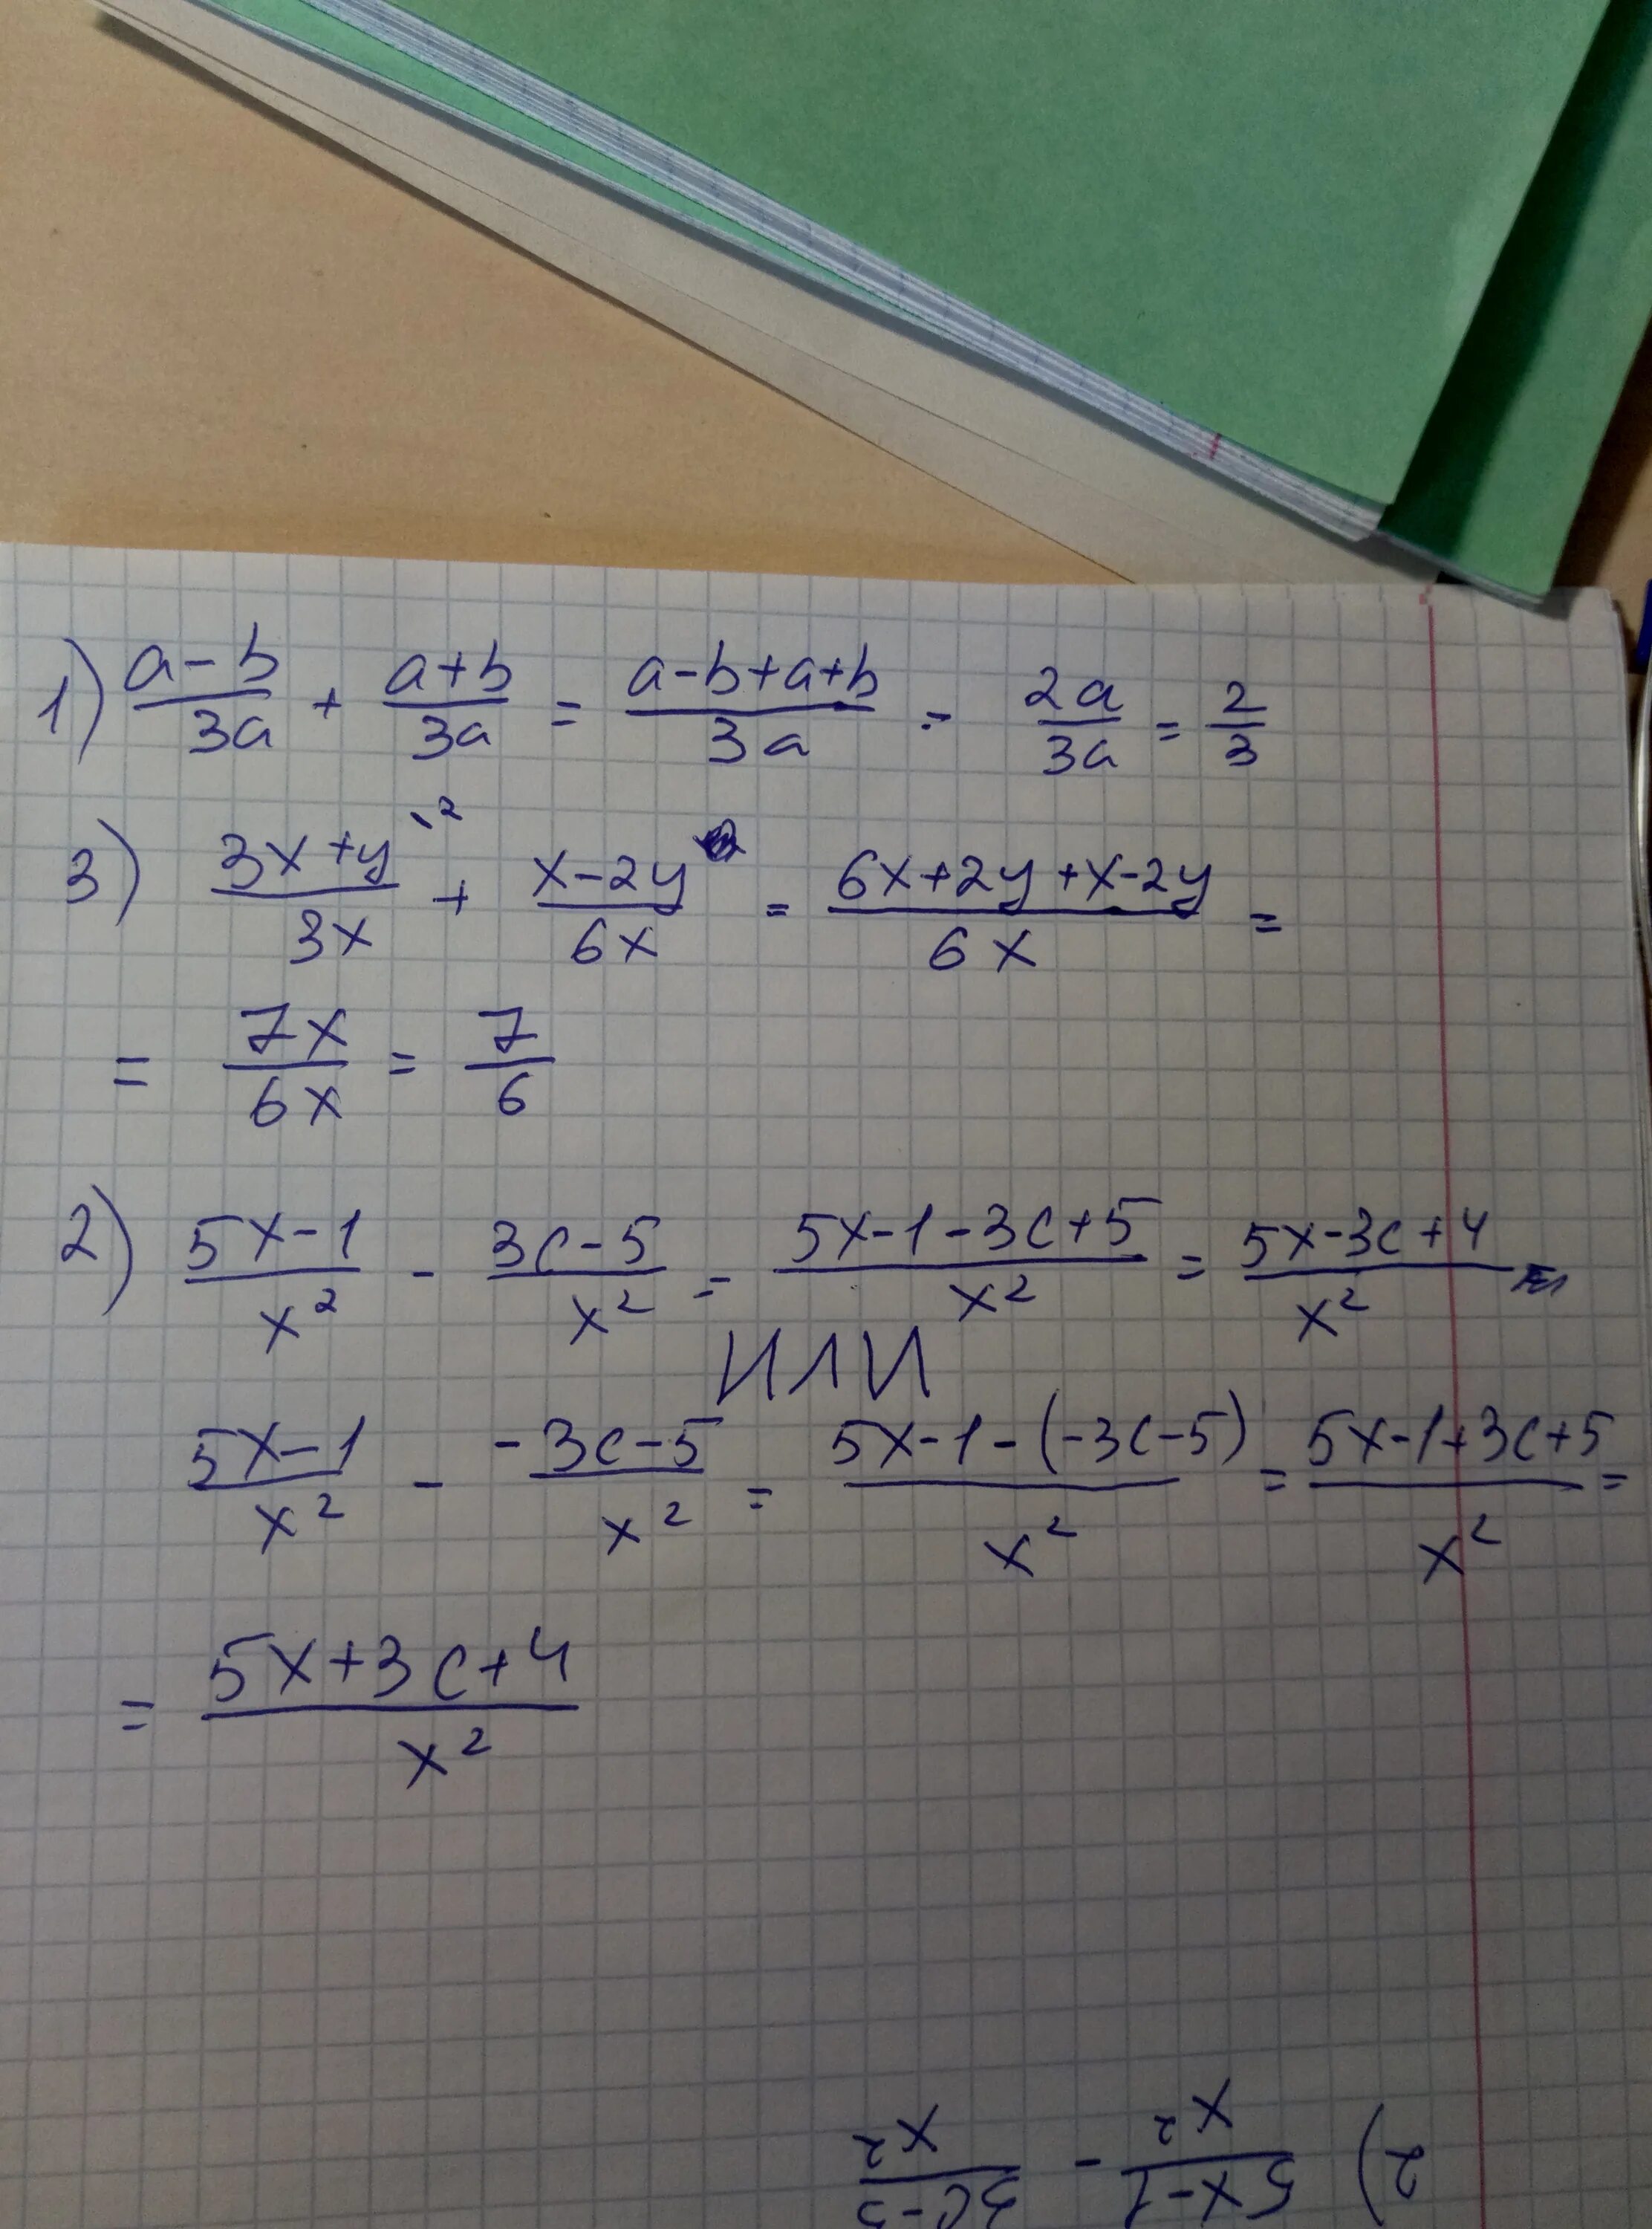 1) (a-b)/(3a) + (a+b)/(3a) = (a-b+a+b)/(3a) = (2a)/(3a) = 2/3
3) (3x+y)/(3x) \² + (x-2y)/(6x) = (6x+2y+x-2y)/(6x) =
= (7x)/(6x) = 7/6
2) (5x-1)/(x²) - (3c-5)/(x²) = (5x-1-3c+5)/(x²) = (5x-3c+4)/(x²)
ИЛИ
(5x-1)/(x²) - (-3c-5)/(x²) = (5x-1-(-3c-5))/(x²) = (5x-1+3c+5)/(x²) =
= (5x+3c+4)/(x²)
2) (5x-1)/(x²) - (3c-5)/(x²)